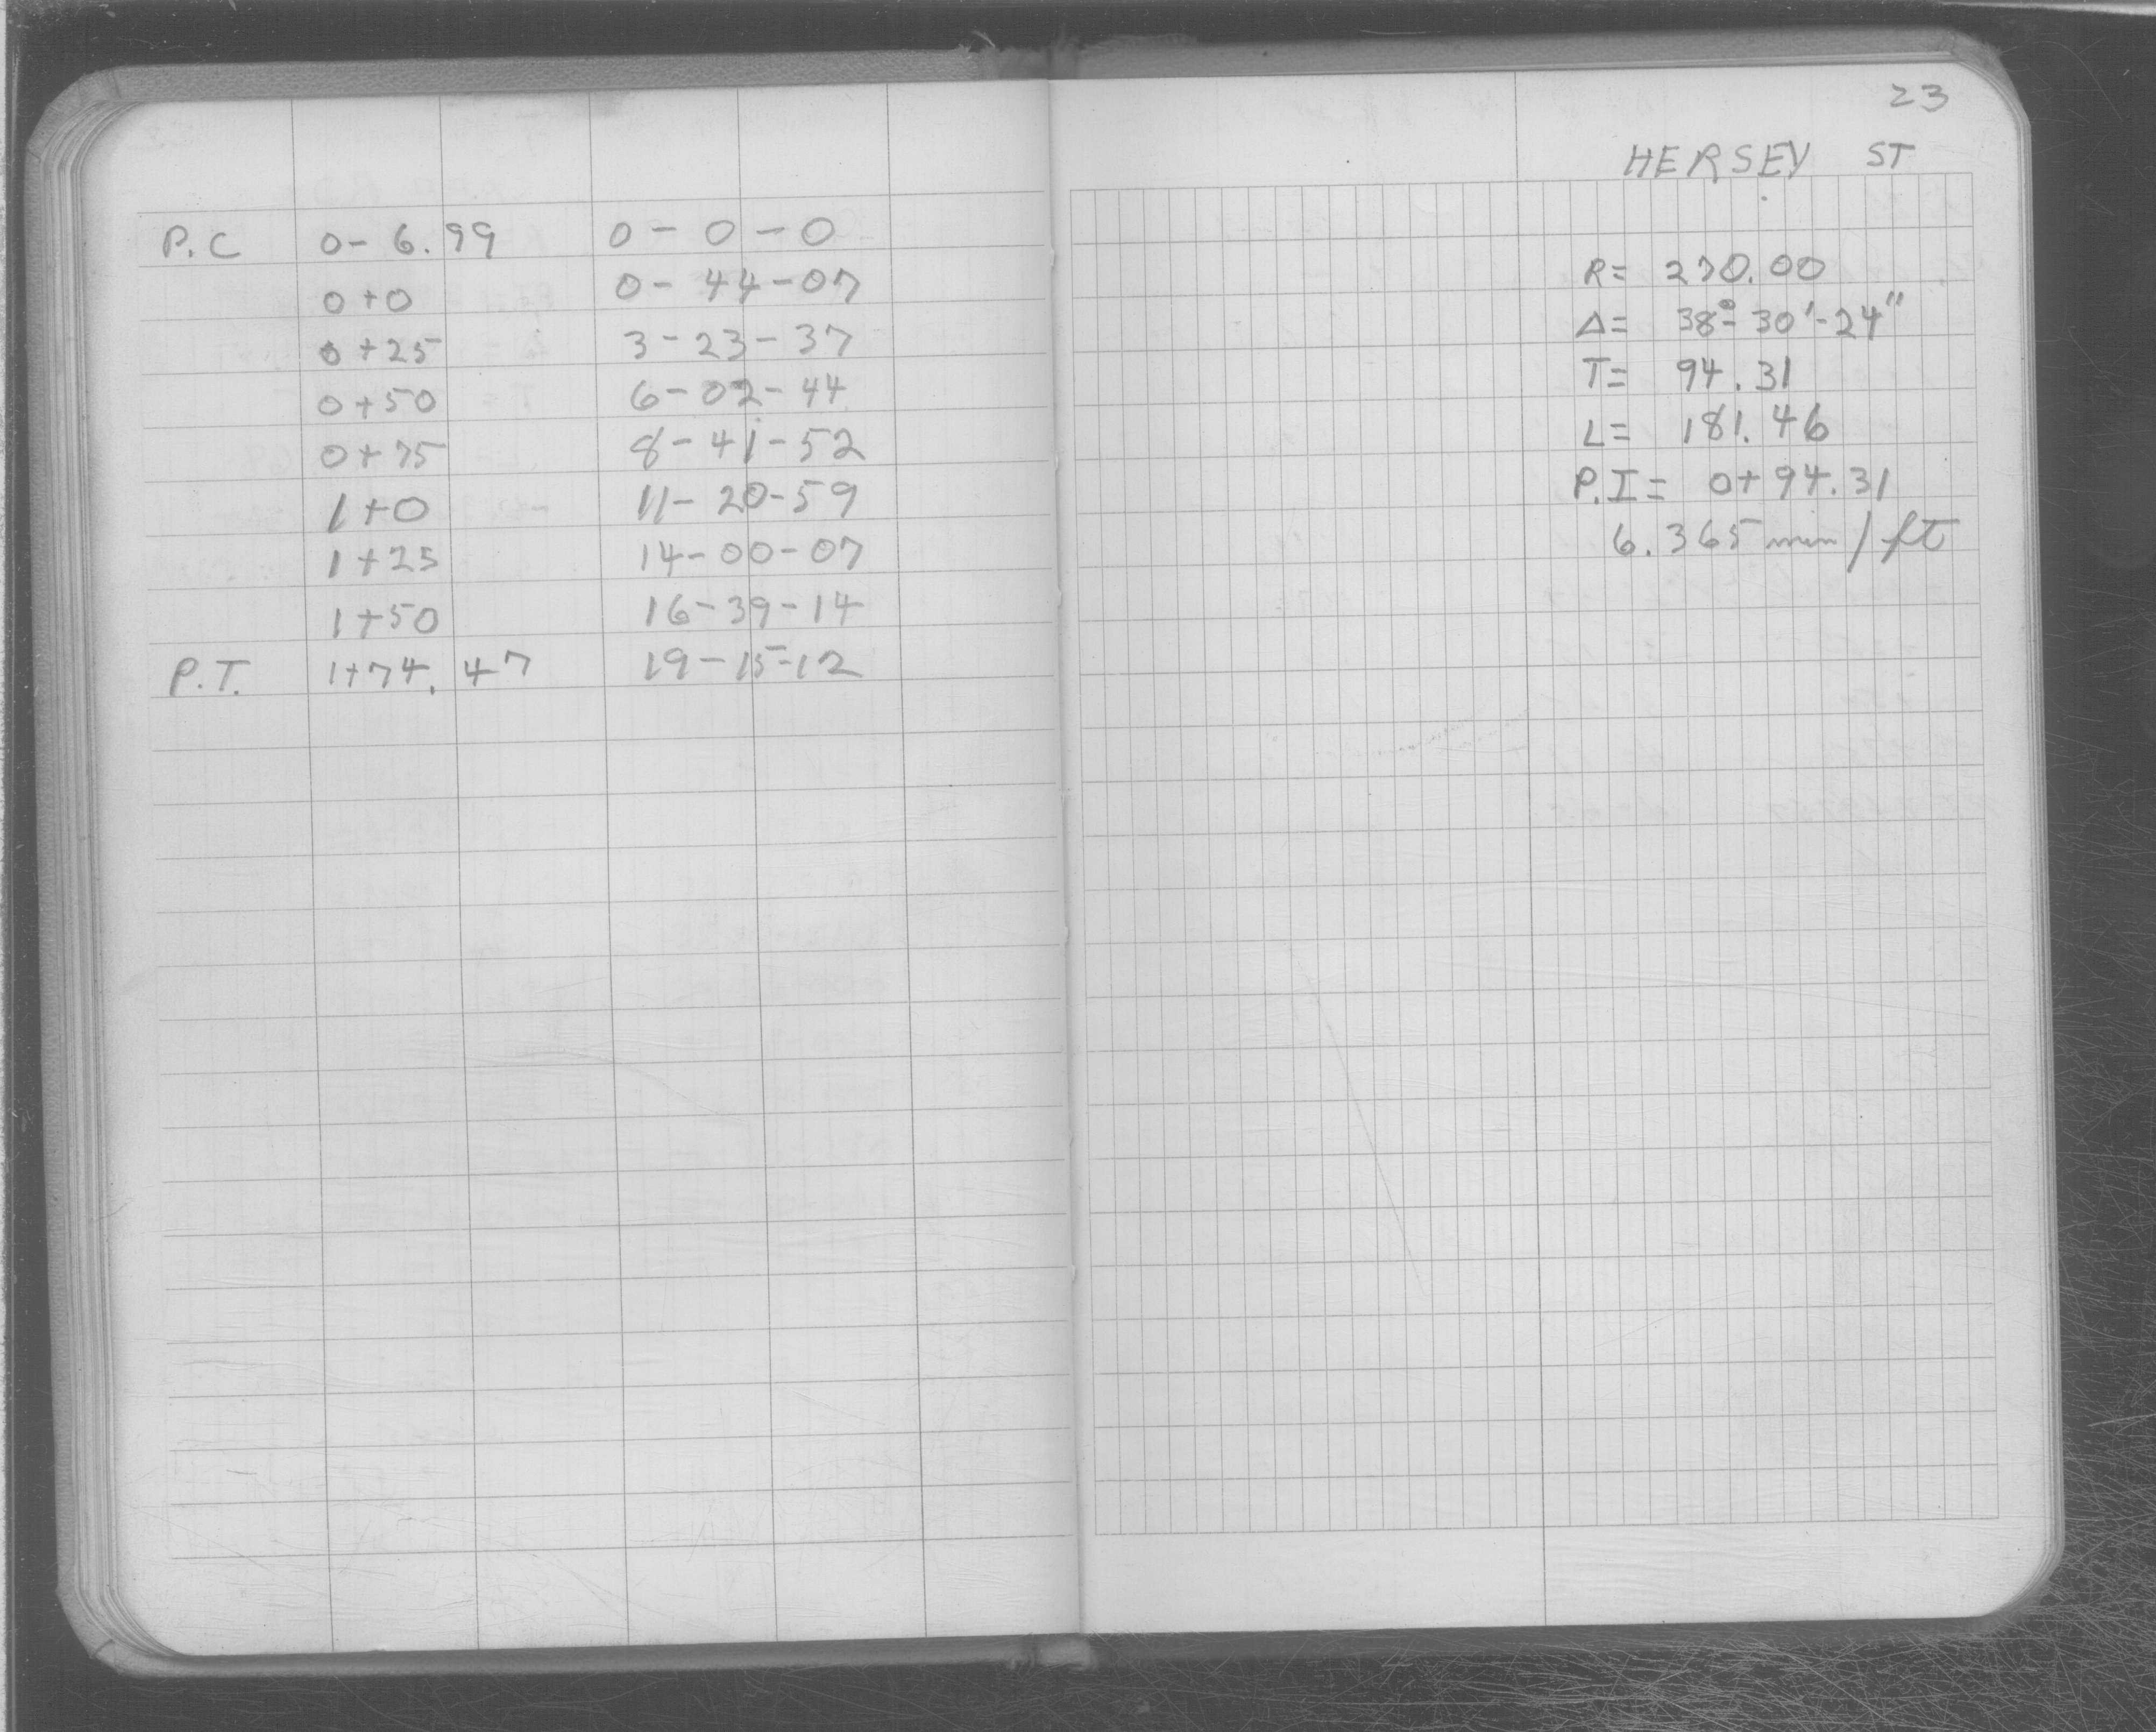 P.C 0- 6.99 0-0-0
0+0 0-44-07
0+25 3-23-37
0+50 6-02-44
0+75 8-41-52
1+0 11-20-59
1+25 14-00-07
1+50 16-39-14
P.T. 1+74.47 19-15-12
23
HERSEY ST
R= 270.00
Δ= 38°-30'-24"
T= 94.31
L= 181.46
P.I= 0+94.31
6.365 min/ft